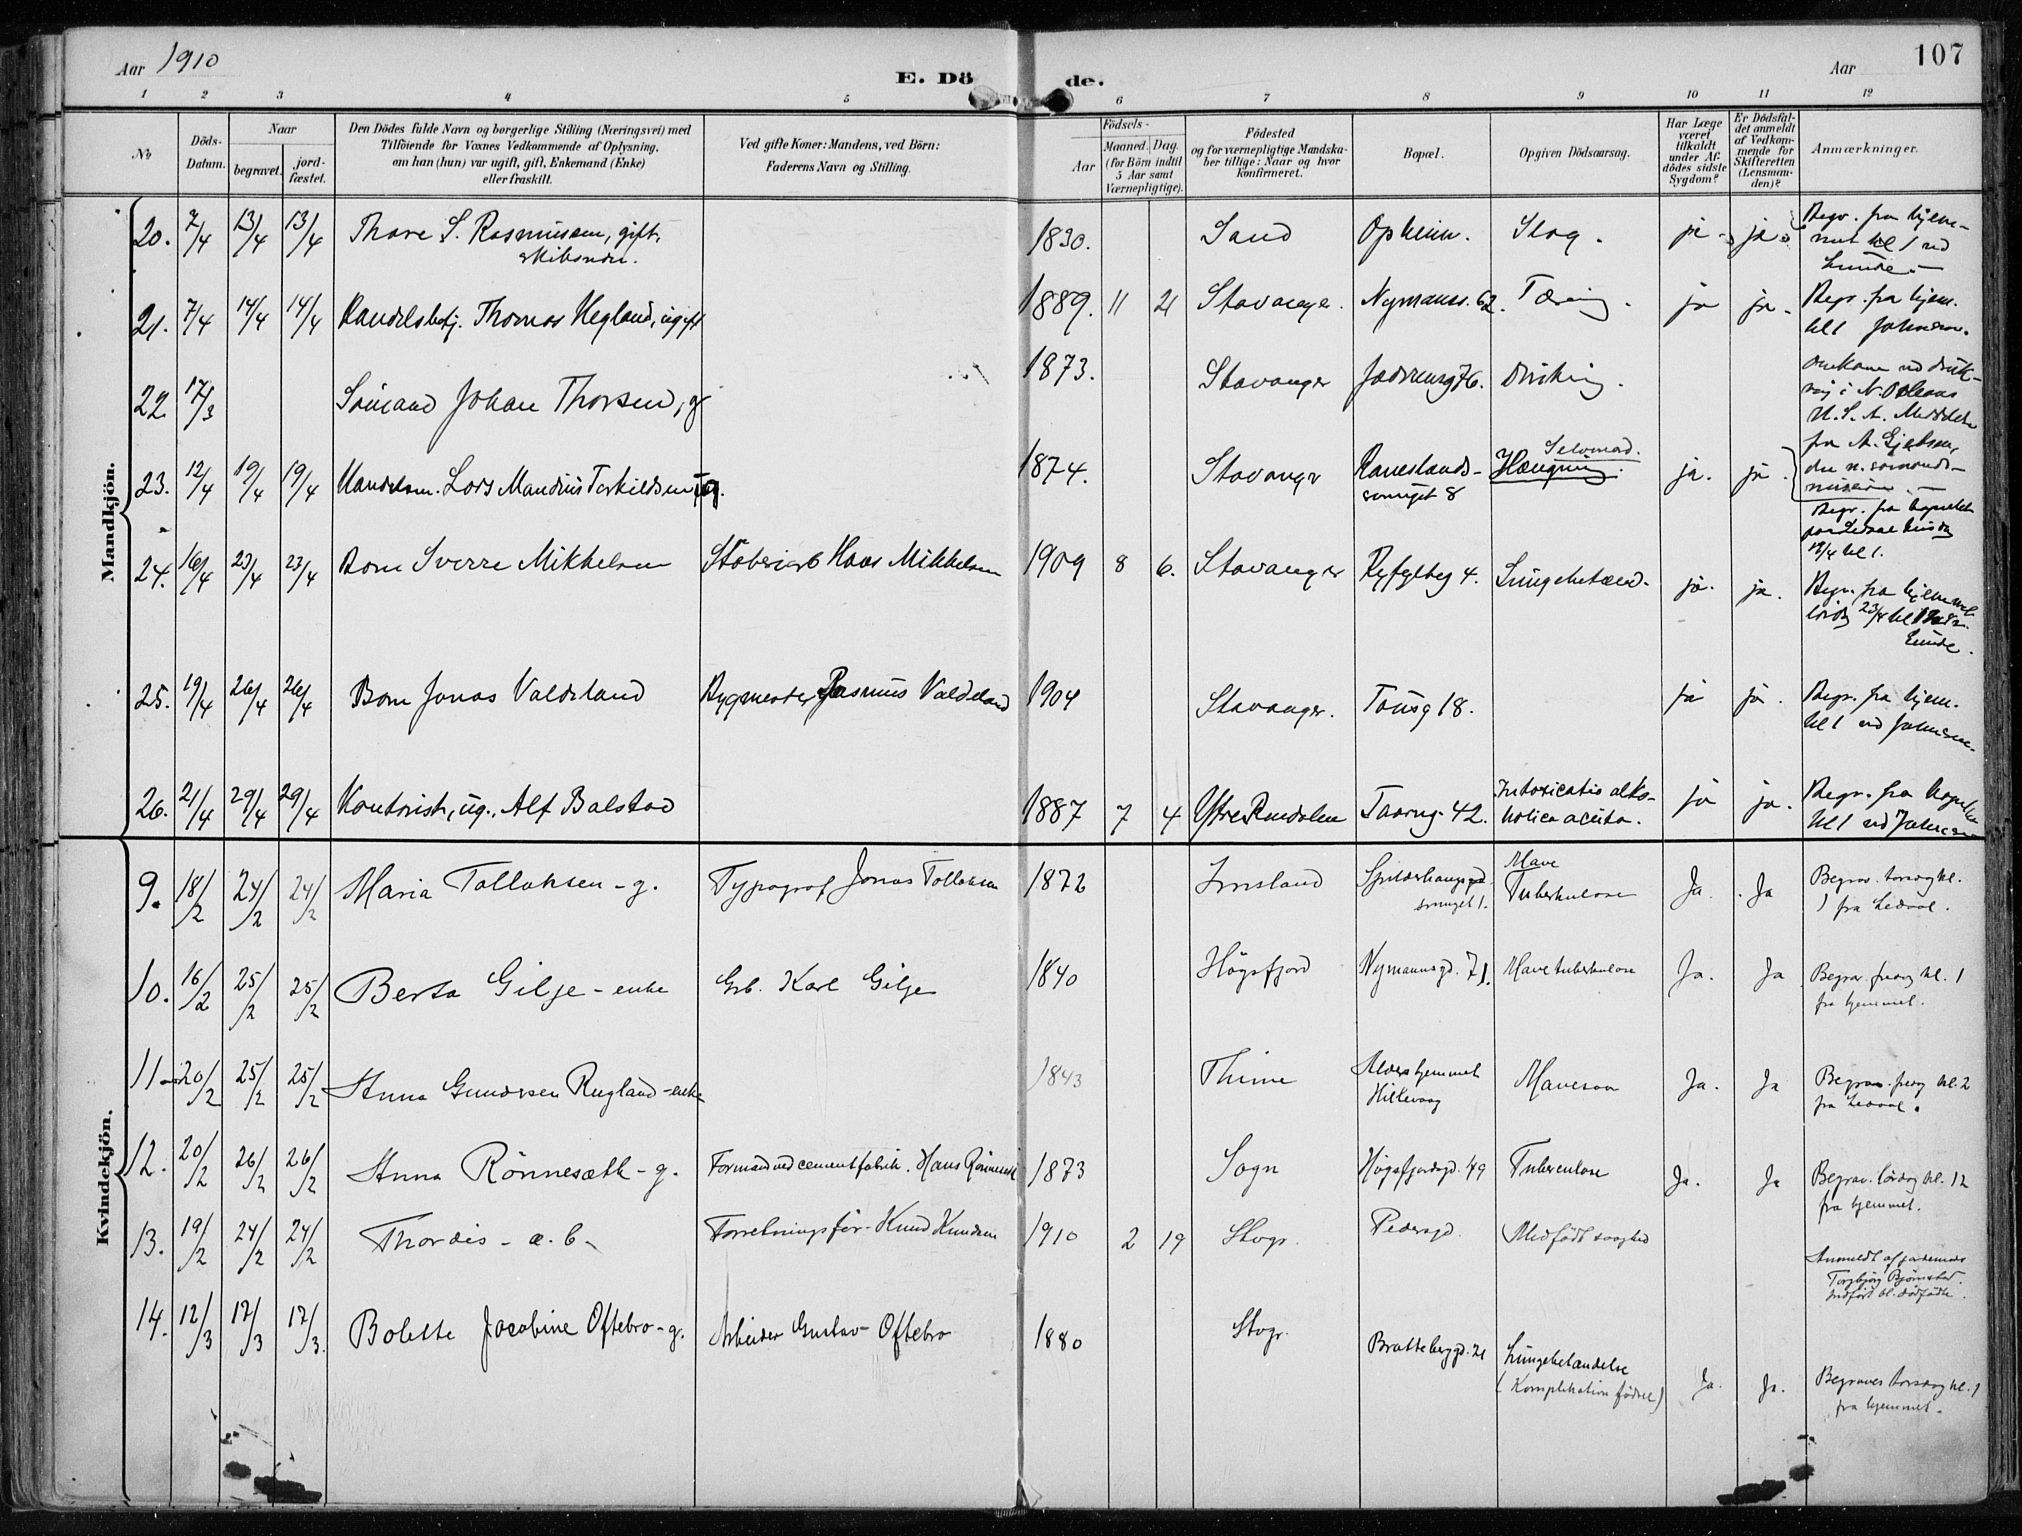 Aar 1910
E. Döde.
Aar
107
1 2 3 4 5 6 7 8 9 10 11 12
No
Döds-Datum.
Naar
begravet.
jord-fæstet.
Den Dödes fulde Navn og borgerlige Stilling (Næringsvei) med
Tilföiende for Voxnes Vedkommende af Oplysning,
om han (hun) var ugift, gift, Enkemand (Enke)
eller fraskilt.
Ved gifte Koner: Mandens, ved Börn:
Faderens Navn og Stilling.
Födsels-
Aar
Maaned. Dag.
(for Börn indtil
5 Aar samt
Værnepligtige).
Födested
og for værnepligtige Mandska-
ber tillige: Naar og hvor
konfirmeret.
Bopæl.
Opgiven Dödsaarsag.
Har Læge
været
tilkaldt
under Af-
dödes sidste
Sygdom?
Er Dödsfal-
det anmeldt
af Vedkom-
mende for
Skifteretten
(Lensman-
den)?
Anmærkninger.
Mandkjön.
20. 7/4 13/4 13/4 Thore S. Rasmussen, gift, 1830. Sand Opheim. Slag. ja ja Begr. fra hjem-
met kl 1 ved
Lunde.
21. 7/4 14/4 14/4 Handelsbetj. Thomas Hegland, ugift 1889. 11 21 Stavanger Nymanss. 62. Tæring. ja ja. Begr. fra hjem.
kl 1 Johnsen.
22. 17/3 Sömand Johan Thorsen, g 1873. Stavanger Jædrensg 76. Drukning. Omkom ved druk-
ning i N. Orleans
U.S.A. Meddelt
fra
23. 12/4 19/4 19/4 Handelsm. Lars Mandius Torkildsen, g. 1874. Stavanger Raneslands-
smuget 8 Selvmord.
Hængning. ja. ja. Begr. fra kapellet
19/4 kl 1.
24. 16/4 23/4 23/4 Barn Sverre Mikkelsen Stöberiarb Hans Mikkelsen 1909 8 6. Stavanger Ryfylkeg 4. Lungebetænd. ja. ja. Begr. fra hjemmet
lördag 23/4 kl
Lunde.
25. 19/4 26/4 26/4 Barn Jonas Valdeland Bygmester Rasmus Valdeland 1904 Stavanger. Tousg 18. ja ja. Begr. fra hjem.
kl 1 ved Johnsen.
26. 21/4 29/4 29/4 Kontorist, ug., Alf Balstad 1887 7 4 Ytre Rendalen Taarng. 42. Intoxicatio alko-
holica acuta. ja ja. Begr. fra kapellet
kl 1 ved Johnsen
Kvindekjön.
9. 18/2 24/2 24/2 Maria Tollaksen - g. Typograf Jonas Tollaksen 1872 Imsland Spilderhaugsgd.
smuget 1. Mave
Tuberkulose Ja. Ja Begrav. torsdag kl.
1 fra Ledaal.
10. 16/2 25/2 25/2 Berta Gilje - enke Grb. Karl Gilje 1840 Högsfjord Nymannsgd. 71. Mavetuberkulose Ja. Ja Begrav. fredag kl. 1
fra hjemmet.
11 20/2 25/2 25/2 Anna Gundersen Rugland - enke 1843 Thime Aldershjemmet
Hillevaag Mavesaar Ja. Ja Begrav. fredag kl. 2
fra Ledaal.
12. 20/2 26/2 26/2 Anna Rönnesæth - g. Formand ved cementfabrik. Hans Rönnesæth 1873 Sogn Högsfjordgd. 49 Tuberculose Ja. Ja Begrav. lördag kl. 12
fra hjemmet.
13. 19/2 24/2 24/2 Thordis - æ. b - Forretningsför. Knud Knudsen 1910 2 19 Stvgr. Pedersgd. Medfödt svaghed Anmeldt af jordemor
Torgbjörg Björnstad.
Indfört bl. dödfödte.
14. 12/3 17/3 17/3. Bolette Jacobine Oftebro - g. Arbeider Gustav Oftebro 1880 Stvgr. Brattebergd. 21 Lungebetændelse
(Komplikation födsel) Ja. Ja. Begraves torsdag kl. 1
fra hjemmet.